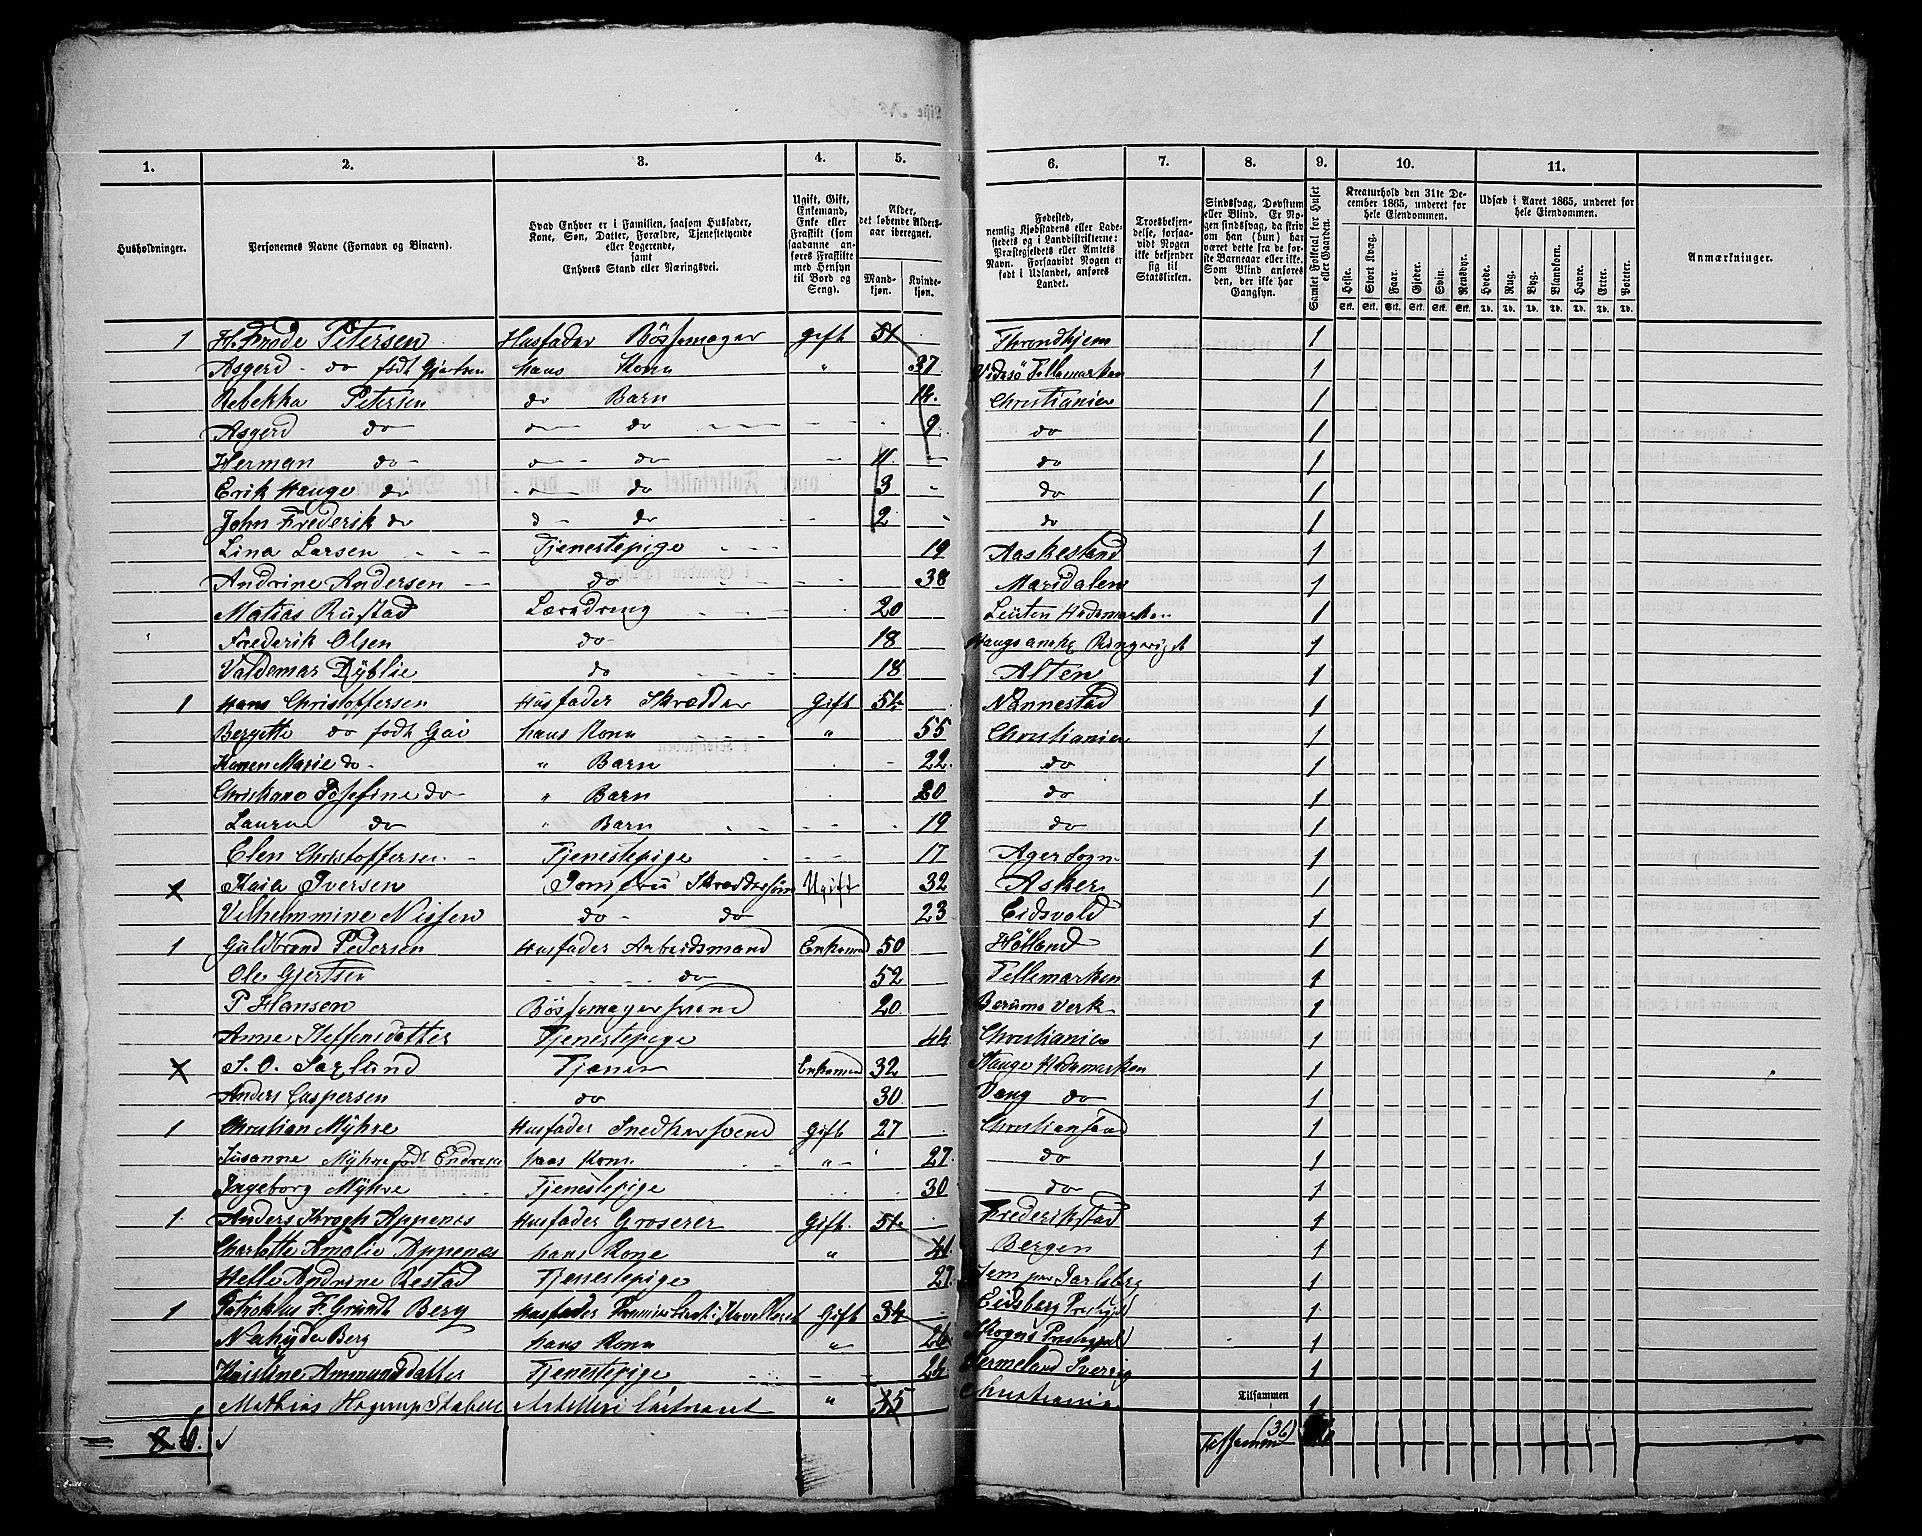 Liste No
1. 2. 3. 4. 5. 6. 7. 8. 9. 10. 11.
Husholdninger.
Personernes Navne (Fornavn og Binavn).
Hvad Enhver er i Familien, saasom Husfader, Kone, Søn, Datter, Forældre, Tjenestetyende eller Logerende, samt Enhvers Stand eller Næringsvei.
Ugift, Gift, Enkemand, Enke eller Fraskilt (som saadanne anføres Fraskilte med Hensyn til Bord og Seng).
Alder, det løbende Aldersaar iberegnet.
Mandkjøn. Kvindekjøn.
Fødested, nemlig Kjøbstadens eller Ladestedets og i Landdistrikterne: Præstegjeldets eller Amtets Navn. Forsaavidt Nogen er født i Udlandet, anføres Landet.
Troesbekjendelse, forsaavidt Nogen ikke bekjender sig til Statskirken.
Sindssvag, Døvstum eller Blind. Er Nogen sindssvag, da skriv om han (hun) har været dette fra de første Barneaar eller ikke. Som Blind anføres den, der ikke har Gangsyn.
Samlet Folketal for Huset eller Gaarden.
Kreaturhold den 31te December 1865, underet for hele Eiendommen.
Heste. Stort Kvæg. Faar. Gjeder. Svin. Rensdyr.
Stk. Stk. Stk. Stk. Stk. Stk.
Udsæd i Aaret 1865, underet for hele Eiendommen.
Hvede. Rug. Byg. Blandkorn. Havre. Erter. Poteter.
Td. Td. Td. Td. Td. Td. Td.
Anmærkninger.
1 H. Frode Petersen Husfader Bøssemager gift 51 Throndhjem 1
Asgerd - do født Gjertsen hans Kone " 37 Tellemarken 1
Rebekka Petersen do Barn 14. Christiania 1
Asgerd do do 9 do 1
Herman do do 11 do 1
Erik Hauge do do 3 do 1
John Frederik do d do 2 do 1
Lina Larsen Tjenestepige 19 Aaskestad 1
Andrine Andersen do 38 Maridalen 1
Matias Rustad Læredreng 20 Leuten Hedemarken 1
Frederik Olsen do 18 Ringeriget 1
Valdemar Dyblie do 18 Alten 1
1 Hans Christoffersen Husfader Skrædder Gift 54 Nannestad 1
Bergette do født Goi hans Kone " 55 Christiania 1
Karen Marie do " Barn 22 do 1
Christiane Josefine do " Barn 20 do 1
Laura do " Barn 19 do 1
Elen Christoffersen Tjenestepige 17 Agersogn 1
1 Kaia Iversen Jomfru Skræddersøm Ugift 32 Asker 1
Vilhelmmine Nissen do do 23 Eidsvold 1
1 Guldbrand Pedersen Husfader Arbeidsmand Enkemand 50 Høtland 1
Ole Gjertsen do 52 Tellemarken 1
P Hansen Bøssemagersvend 20 Bærums Verk 1
Anne Steffensdatter Tjenestepige 44 Christiania 1
1 S. O. Saxlund Tjener Enkemand 32 Stange Hedemarken 1
Anders Caspersen do 30 Vang do 1
1 Christian Myhre Husfader Snedkersvend Gift 27 Christiansand 1
Susanne Myhre født hans Kone " 27 do 1
Ingeborg Myhre Tjenestepige 30 do 1
1. Anders Krogh Appenæs Husfader Groserer Gift 54 Frederikstad 1
Charlotte Amalie Appenæs hans Kone " 41 Bergen 1
Helle Andrine Restad Tjenestepige 27. Sem Jarlsberg 1
1 Patroklus F. Grundt Berg Husfader Gift 34 Eidsberg 1
Berg hans Kone " 26 Skogns 1
Kristine Ammundsdatter Tjenestepige 24 Vermeland Sverrig 1
Mathias Hagerup Stabell " 35 Christiania 1
Tilsammen
8 6. Tilsammen (36)